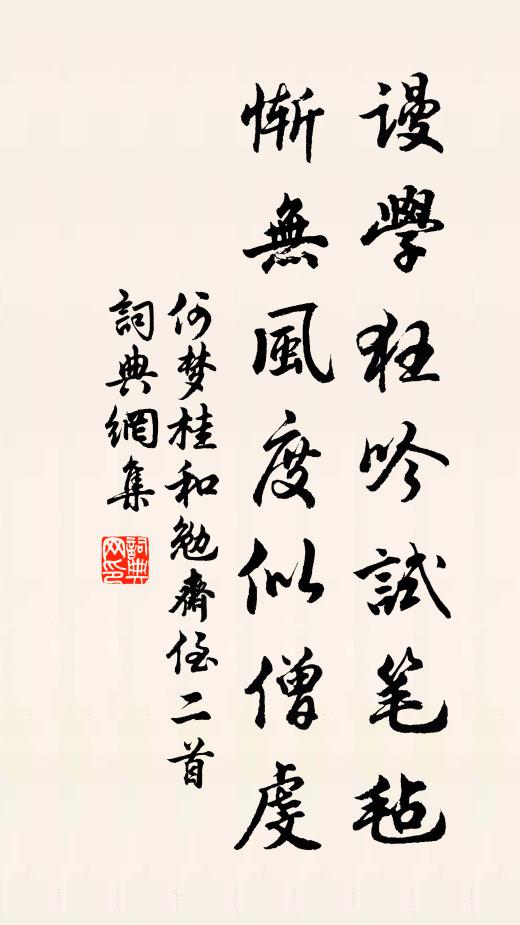 谩學狂吟試笔毡
慚無風度似僧虔
何梦桂和勉齋侄二首
詞典網集
詞典网印